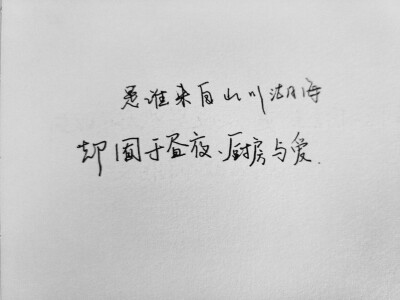 是谁来自山川湖海
却囿于昼夜、厨房与爱.